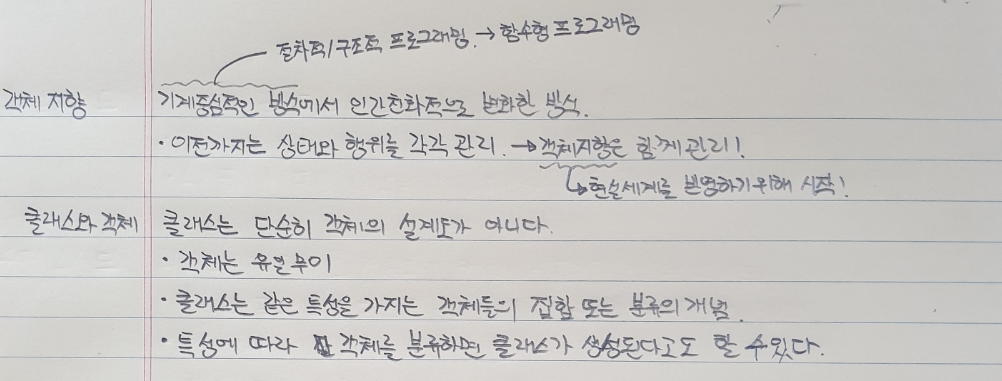 절차적/구조적 프로그래밍. → 함수형 프로그래밍
객체 지향 기계중심적인 방식에서 인간친화적으로 변화한 방식.
· 이전까지는 상태와 행위를 각각 관리. → 객체지향은 함께 관리!
↳ 현실세계를 반영하기위해 시작!
클래스와 객체 클래스는 단순히 객체의 설계도가 아니다.
· 객체는 유일무이
· 클래스는 같은 특성을 가지는 객체들의 집합 또는 분류의 개념.
· 특성에 따라 객체를 분류하면 클래스가 생성된다고도 할 수 있다.